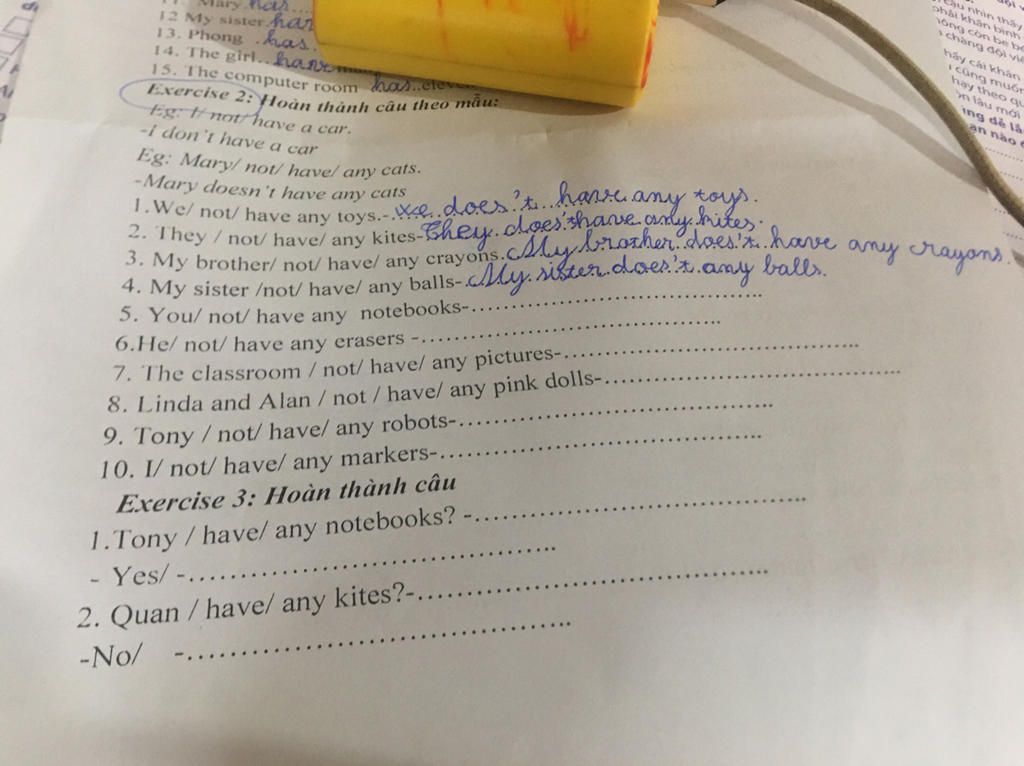 11. Mary has...
12 My sister har
13. Phong .has.
14. The girl..have
15. The computer room has..eleve
Exercise 2: Hoàn thành câu theo mẫu:
Eg: I/ not/ have a car.
-i don't have a car
Eg: Mary/ not/ have/ any cats.
-Mary doesn't have any cats
1.We/ not/ have any toys.-...we..does't..have any toys.
2. They / not/ have/ any kites-They.does'thave.any.kites.
3. My brother/ not/ have/ any crayons.My.brother.does't.have any crayons.
4. My sister /not/ have/ any balls-.My.sister.does't.any balls.
5. You/ not/ have any notebooks-..........................................
6.He/ not/ have any erasers -..........................................
7. The classroom / not/ have/ any pictures-..........................................
8. Linda and Alan / not / have/ any pink dolls-..........................................
9. Tony / not/ have/ any robots-..........................................
10. I/ not/ have/ any markers-..........................................
Exercise 3: Hoàn thành câu
1.Tony / have/ any notebooks? -..........................................
- Yes/ -..........................................
2. Quan / have/ any kites?-..........................................
-No/ -..........................................
cầu nhìn thấy
phải khăn bình
không còn be bé
chàng đội viê
hấy cái khăn
cũng muốn
hay theo qu
ơn lâu mới
ing dễ lã
ạn nào